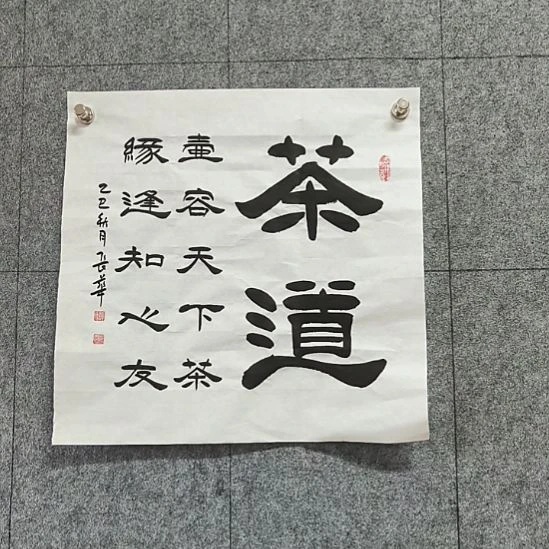 茶道
壶容天下茶
緣逢知心友
乙巳秋月 長華